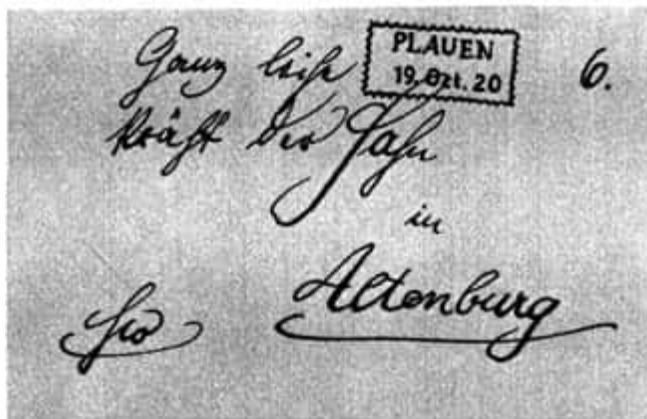 Ganz leise
PLAUEN
19. Okt. 20
6.
kräht der Hahn
in
Altenburg